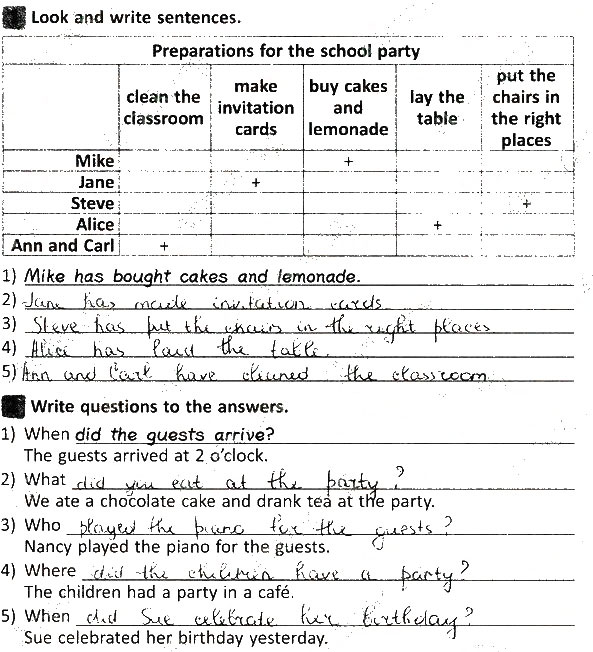 Look and write sentences.
Preparations for the school party
clean the classroom
make invitation cards
buy cakes and lemonade
lay the table
put the chairs in the right places
Mike +
Jane +
Steve +
Alice +
Ann and Carl +
1) Mike has bought cakes and lemonade.
2) Jane has made invitation cards
3) Steve has put the chairs in the right places
4) Alice has laid the table.
5) Ann and Carl have cleaned the classroom
Write questions to the answers.
1) When did the guests arrive?
The guests arrived at 2 o'clock.
2) What did you eat at the party?
We ate a chocolate cake and drank tea at the party.
3) Who played the piano for the guests?
Nancy played the piano for the guests.
4) Where did the children have a party?
The children had a party in a café.
5) When did Sue celebrate her birthday?
Sue celebrated her birthday yesterday.